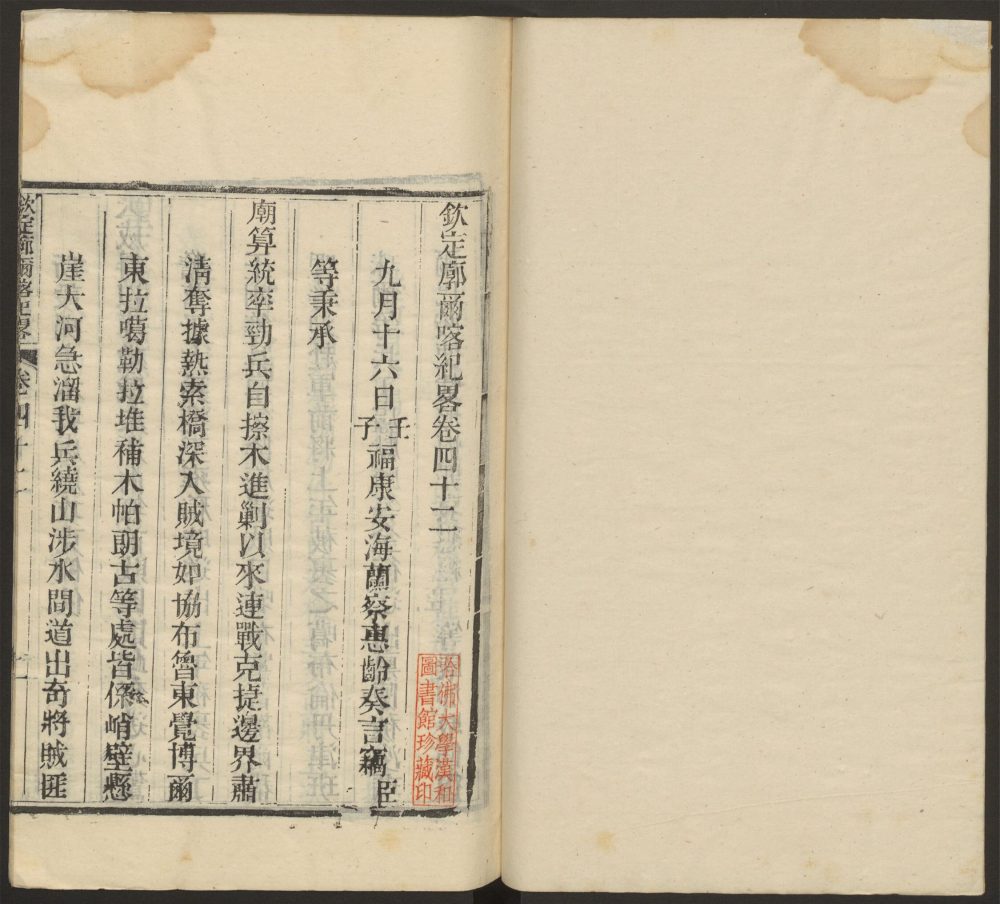 欽定廓爾喀紀畧卷四十二
九月十六日壬子福康安海蘭察惠齡奏言竊臣
等秉承
廟算統率勁兵自擦木進剿以來連戰克捷邊界肅
清奪據熱索橋深入賊境如協布魯東覺博爾
東拉噶勒拉堆補木帕朗古等處皆係峭壁懸
崖大河急溜我兵繞山涉水間道出奇將賊匪
欽定廓爾喀紀畧
卷四十二
一
哈佛大學漢和
圖書館珍藏印